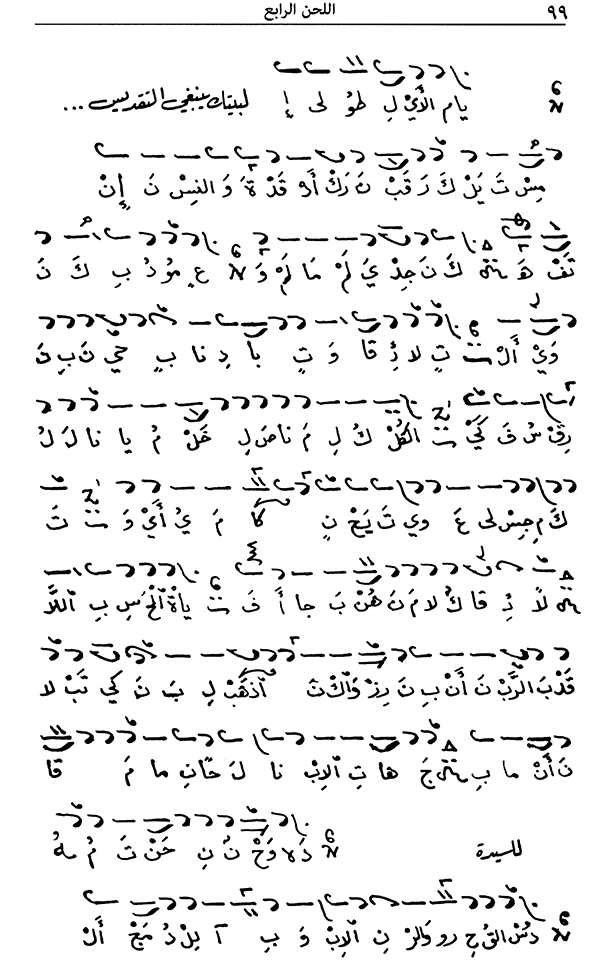 ٩٩ اللحن الرابع
يام الأَيْ لِ طو لى إِ لبيتك ينبغي التقديس ...
مِسْ تَ يَلْ كَ رَ قَبْ نَ رَكْ قَدْ ةَ وَ النِسْ نَ إِنْ
تَفْ كَ نَ جِدْ يَ لَمْ مَا لَمْ وَ عِ مُوْ دُ بِ كَ نَ
وَيْ أَلْ تٍ لا ئِ قا وَ تٍ بأ دِ نا بٍ حَيْ نَ بِ نَ
رِقْ سُ فَ كَيْ الكُلْ كُ لِ مَ ناصِ لِ خَلْ مُ يا نا لَ لُ
كَ مِ جِسْ لى عَ وي تَ يَحْ نِ كا مَ يُ أَيْ وَ تَ
لا ئِ قا كُ لا مَ نَ هُنْ بَ جا أَ فَ سِ بِ اللا
قَدْ بَ الرَبْ نَ أَنْ بِ نَ رِزْ وَاكْ تَ اذْهَبْ لِ بَ نَ كي تَبْ لا
نَ أَنْ ما بِ جَ ها تِ الابْ نا لَ حانِ ما مَ قا
للسيدة وَحْ نُ نِ حَنْ تَ مُ هُ
دُسْ القُ حِ رو وَالرْ نِ الابْ وَ بِ آ لِلْ دُ مَجْ أَلْ